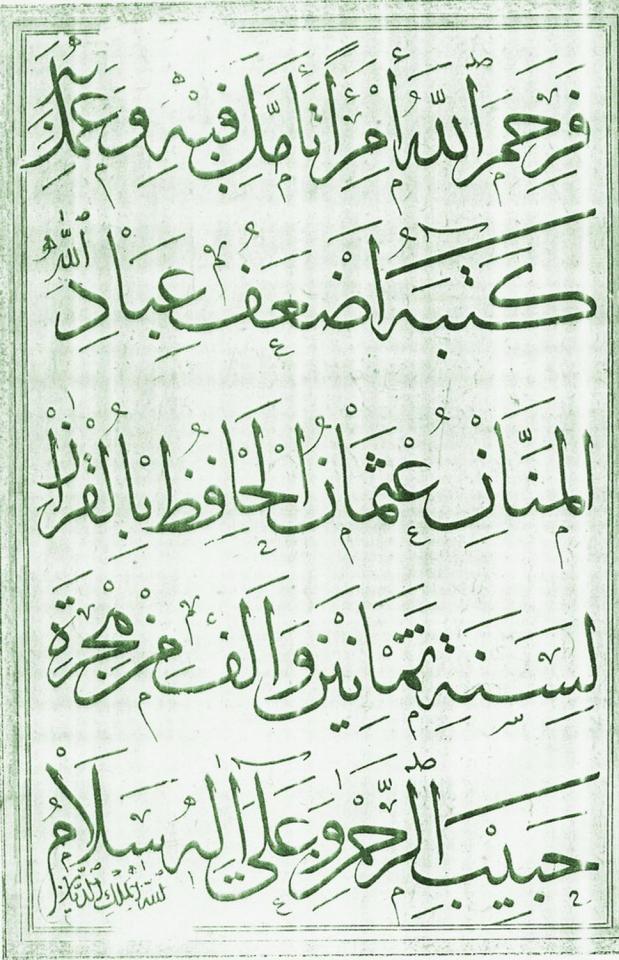 فَرَحِمَ اللهُ أَمْرَأً تَأَمَّلَ فِيهِ وَعَمِلَ بِهِ
كَتَبَهُ اَضْعَفُ عِبَادِ اللهِ
الْمَنَّانِ عُثْمَانُ الْحَافِظُ بِالْقُرْاٰنِ
لِسَنَةِ ثَمَانِينَ وَاَلْفٍ مِنْ هِجْرَةِ
حَبِيبِ الرَّحْمٰنِ وَعَلَى آلِهِ سَلَامُ
اللهِ الْمَلِكِ الدَّيَّانِ